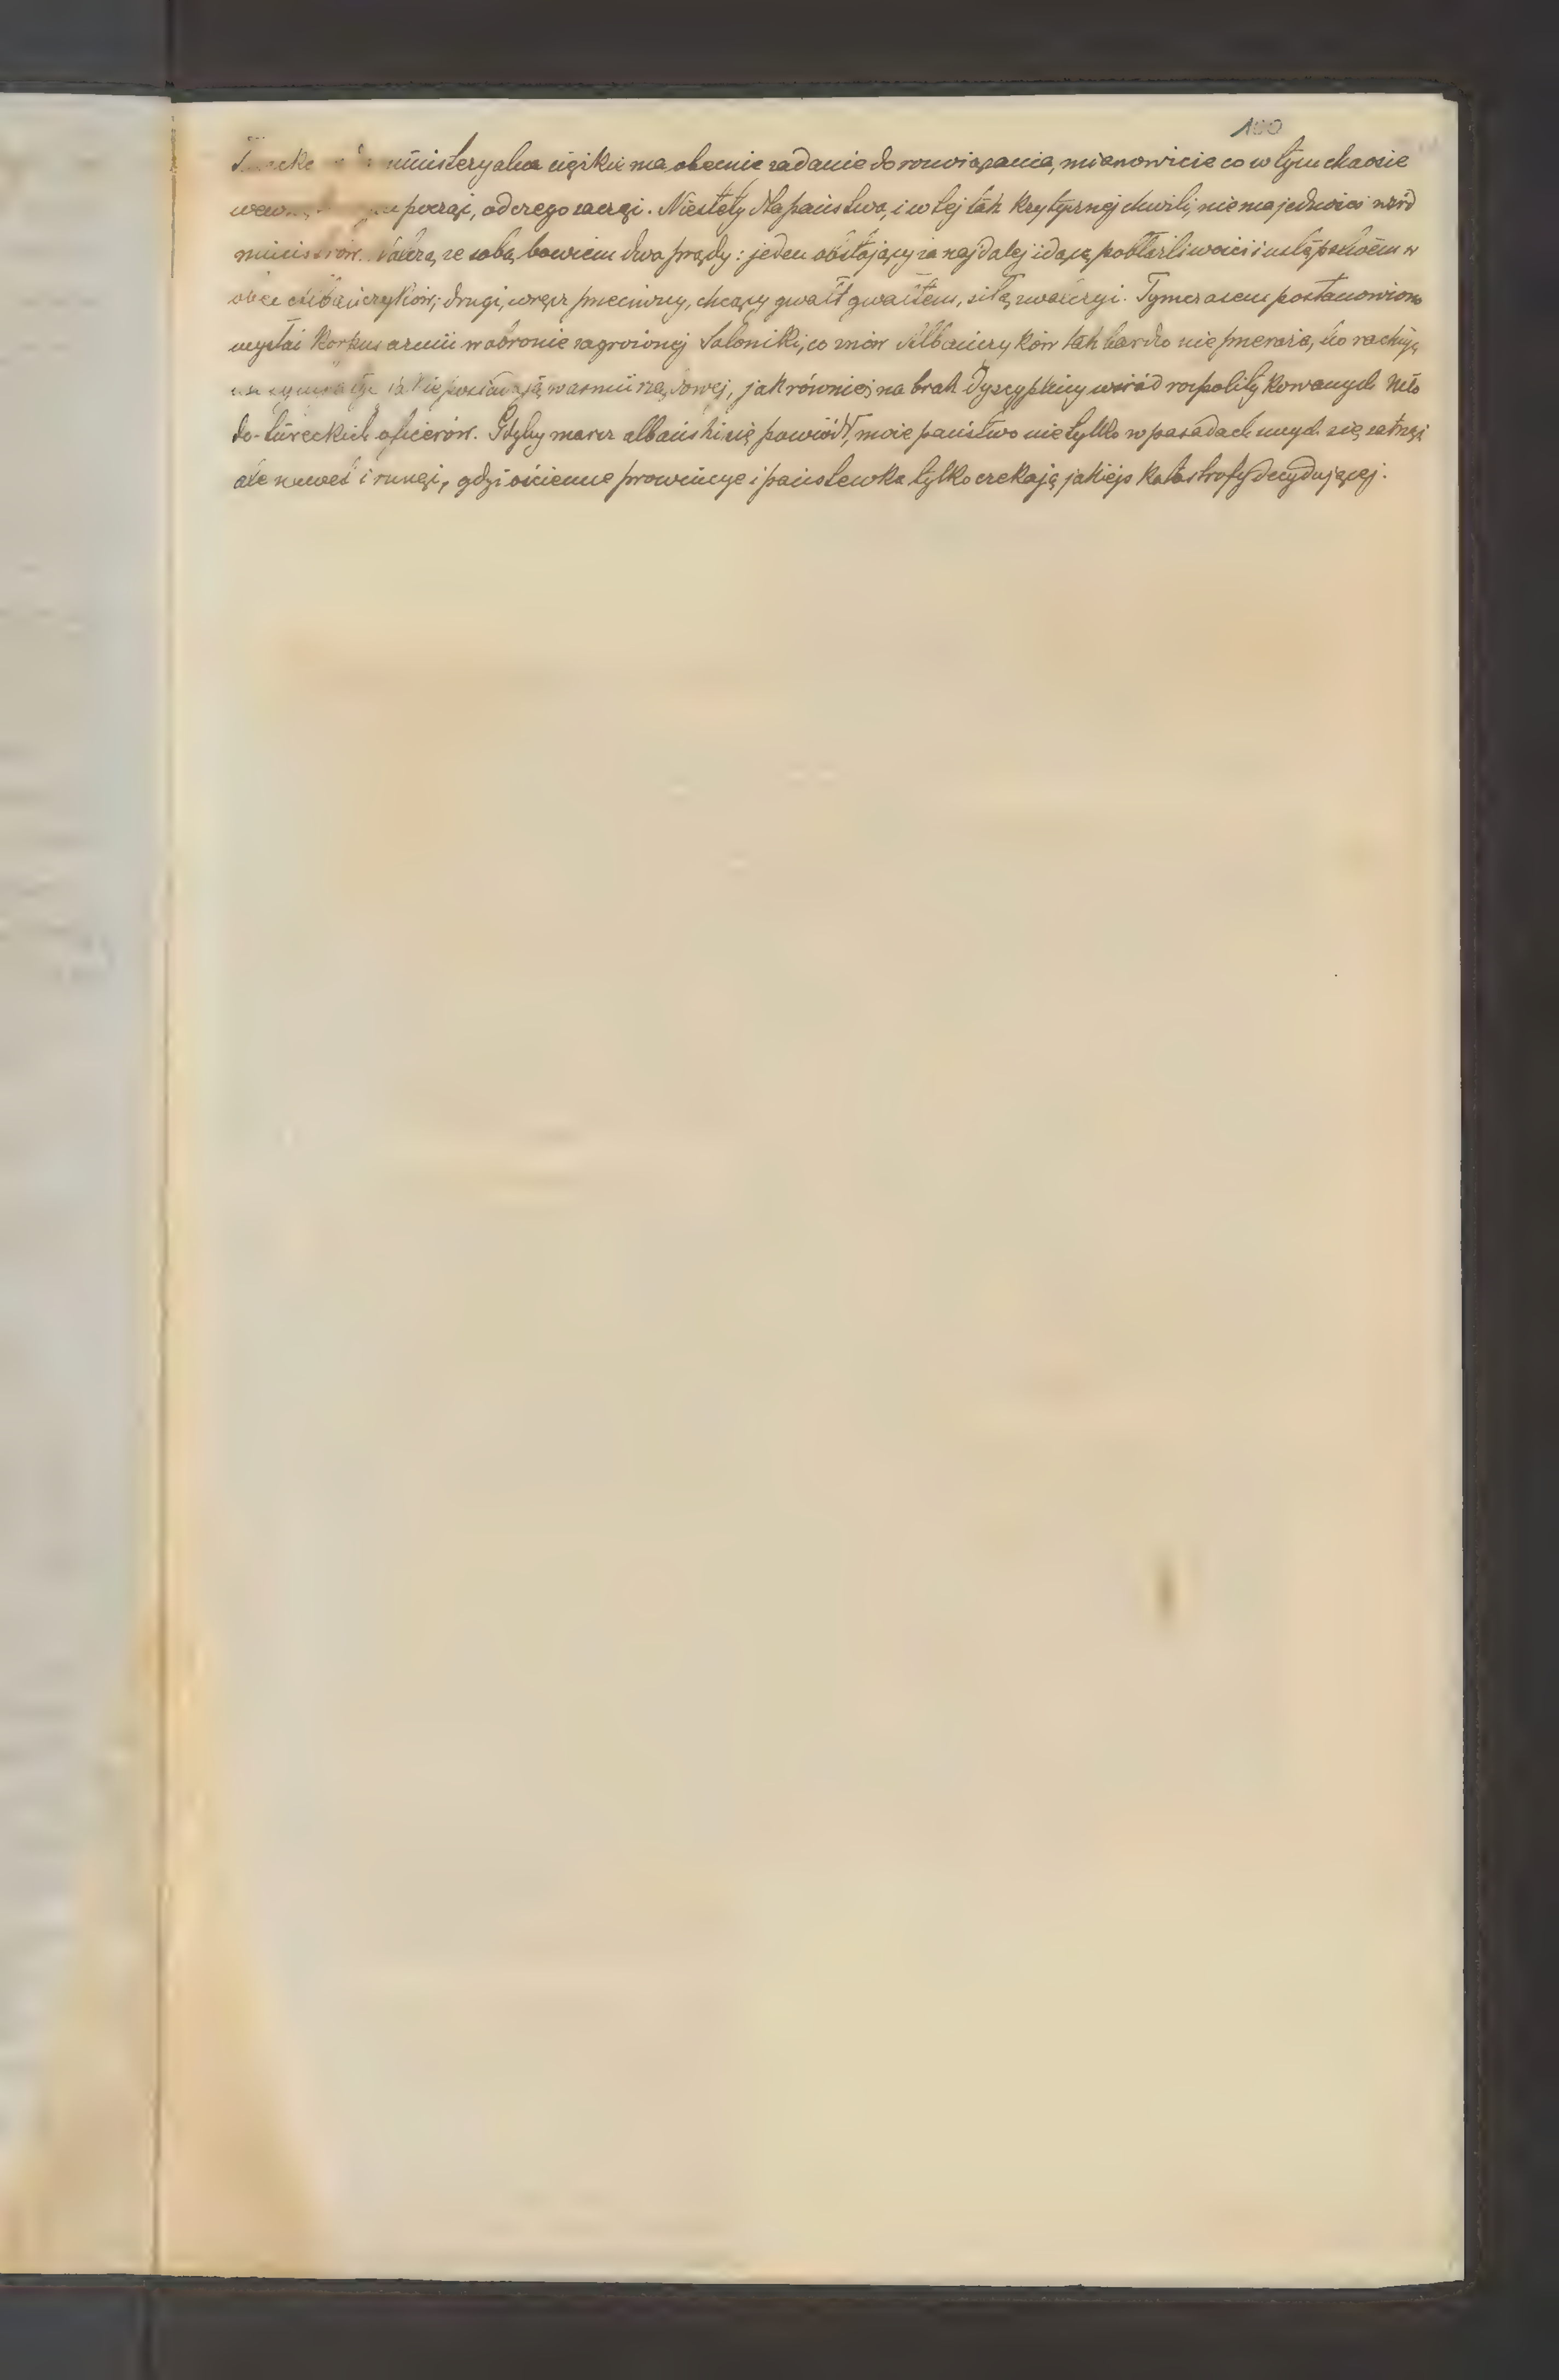 100
ministeryalna ciężkie ma obecnie zadanie do rozwiązania, mianowicie co w tym chaosie
począć, od czego zacząć. Niestety dla państwa, i w tej tak krytycznej chwili, niema jedności wśród
ministrów. Walczą ze sobą bowiem dwa prądy: jeden obstający za najdalej idącą pobłażliwością i ustępstwem w
obec Albańczyków; drugi, wręcz przeciwny, chcący gwałt gwałtem, siłą zwalczyć. Tymczasem postanowiono
wysłać korpus armii w obronie zagrożonej Saloniki, co znów Albańczyków tak bardzo nie przeraża, bo rachują
na sympatye jakie posiadają w armii rządowej, jak również na brak dyscypliny wśród rozpolitykowanych mło
do-tureckich oficerów. Gdyby marsz albański się powiódł, może państwo nie tylko w posadach swych się zatrząść
ale nawet i runąć, gdyż ościenne prowincye i państewka tylko czekają jakiejś katastrofy decydującej.